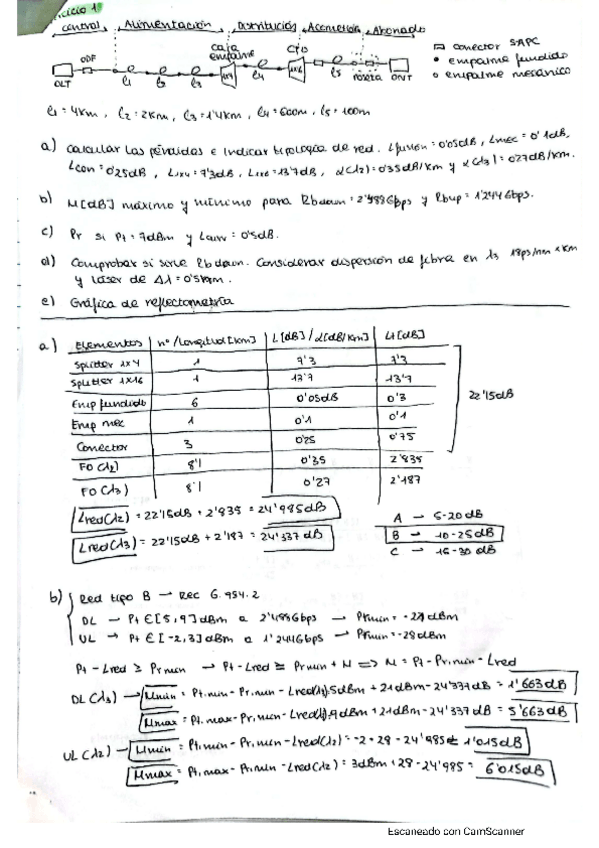 Ejercicio 1
Central Alimentación Distribución Acometida Abonado
ODF caja empalme CTO
OLT l1 l2 l3 1x4 l4 1x16 l5 roseta ONT
▭ conector SAPC
• empalme fundido
○ empalme mecánico
l1 = 4km, l2 = 2km, l3 = 1'4km, l4 = 600m, l5 = 100m
a) Calcular las pérdidas e indicar tipología de red. Lfusión = 0'05dB, Lmec = 0'1dB,
Lcon = 0'25dB, L1x4 = 7'3dB, L1x16 = 13'7dB, α(λ2) = 0'35dB/km y α(λ3) = 0'27dB/km.
b) M[dB] máximo y mínimo para Rbdown = 2'488Gbps y Rbup = 1'244Gbps.
c) Pr si Pt = 7dBm y = 0'5dB.
d) Comprobar si sirve Rbdown. Considerar dispersión de fibra en λ3 18ps/nm km
y láser de Δλ =
e) Gráfica de reflectometría
a) Elementos nº/longitud[km] L[dB]/α[dB/km] Lt[dB]
Splitter 1x4 1 7'3 7'3
Splitter 1x16 1 13'7 13'7
Emp fundido 6 0'05dB 0'3
Emp mec 1 0'1 0'1
Conector 3 0'25 0'75
22'15dB
FO (λ2) 8'1 0'35 2'835
FO (λ3) 8'1 0'27 2'187
Lred(λ2) = 22'15dB + 2'835 = 24'985dB
Lred(λ3) = 22'15dB + 2'187 = 24'337dB
A → 5-20dB
B → 10-25dB
C → 15-30dB
b) Red tipo B → Rec G.984.2
DL → Pt ∈ [5, 9]dBm a 2'488Gbps → Prmin = -21dBm
UL → Pt ∈ [-2, 3]dBm a 1'244Gbps → Prmin = -28dBm
Pt - Lred ≥ Prmin → Pt - Lred ≥ Prmin + M ⟺ M = Pt - Prmin - Lred
DL(λ3) → Mmin = Pt,min - Pr,min - Lred(λ3) 5dBm + 21dBm - 24'337dB = 1'663dB
Mmax = Pt,max - Pr,min - Lred(λ3) 9dBm + 21dBm - 24'337dB = 5'663dB
UL(λ2) → Mmin = Pt,min - Pr,min - Lred(λ2) = -2 + 28 - 24'985 = 1'015dB
Mmax = Pt,max - Pr,min - Lred(λ2) = 3dBm + 28 - 24'985 = 6'015dB
Escaneado con CamScanner